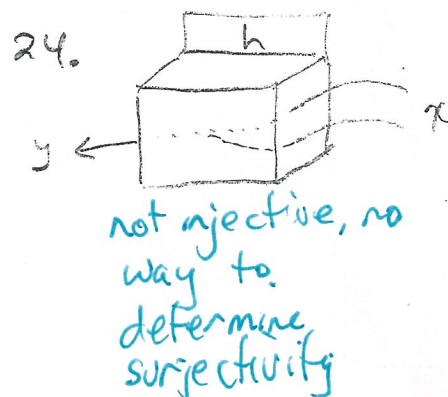 24.
h
y
x
not injective, no
way to
determine
surjectivity